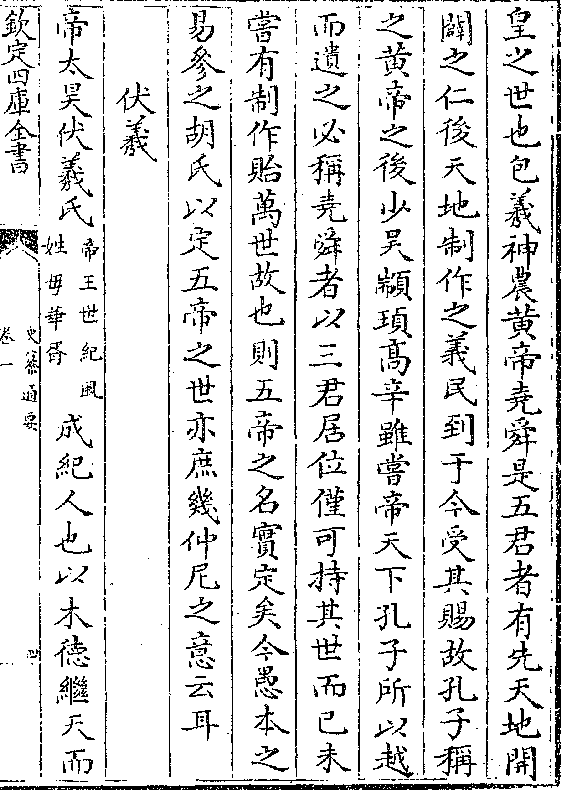 皇之世也包羲神農黄帝堯舜是五君者有先天地開
闢之仁後天地制作之義民到于今受其賜故孔子稱
之黄帝之後少昊顓頊髙辛雖嘗帝天下孔子所以越
而遺之必稱堯舜者以三君居位僅可持其世而已未
嘗有制作貽萬世故也則五帝之名實定矣今愚本之
易參之胡氏以定五帝之世亦庶幾仲尼之意云耳
伏羲
帝太昊伏羲氏
帝王世紀風
姓母華胥
成紀人也以木徳繼天而
欽定四庫全書
史纂通要
卷一
四